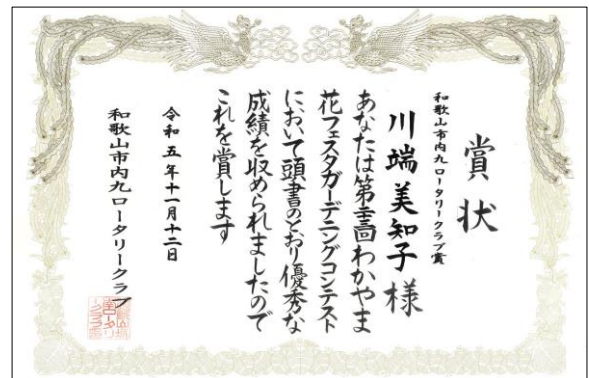 賞状
和歌山市内九ロータリークラブ賞
川端美知子様
あなたは第回わかやま
花フェスタガーデニングコンテスト
において頭書のとおり優秀な
成績を収められましたので
これを賞します
令和五年十一月十二日
和歌山市内九ロータリークラブ